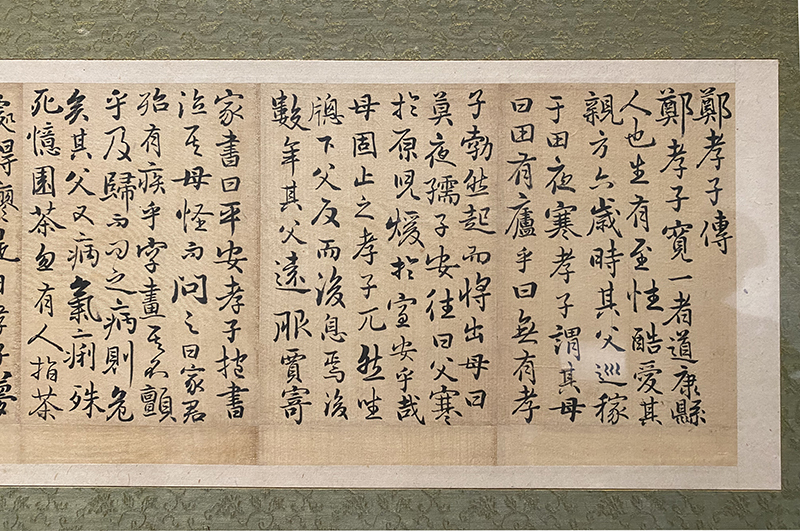 鄭孝子傳
鄭孝子寶一者道康縣
人也生有至性酷愛其
親方六歲時其父巡稼
于田夜寒孝子謂其母
曰田有廬乎曰無有孝
子勃然起而將出母曰
莫夜孺子安往曰父寒
於原兒煖於室安乎哉
母固止之孝子兀然坐
牕下父反而後息焉後
數年其父遠服賈寄
家書曰平安孝子抱書
泣其母怪而問之曰家君
殆有疾乎字畫其不顫
乎及歸而問之病則危
矣其父又病氣下痢殊
死憶團茶忽有人指茶
處得療日孝子夢